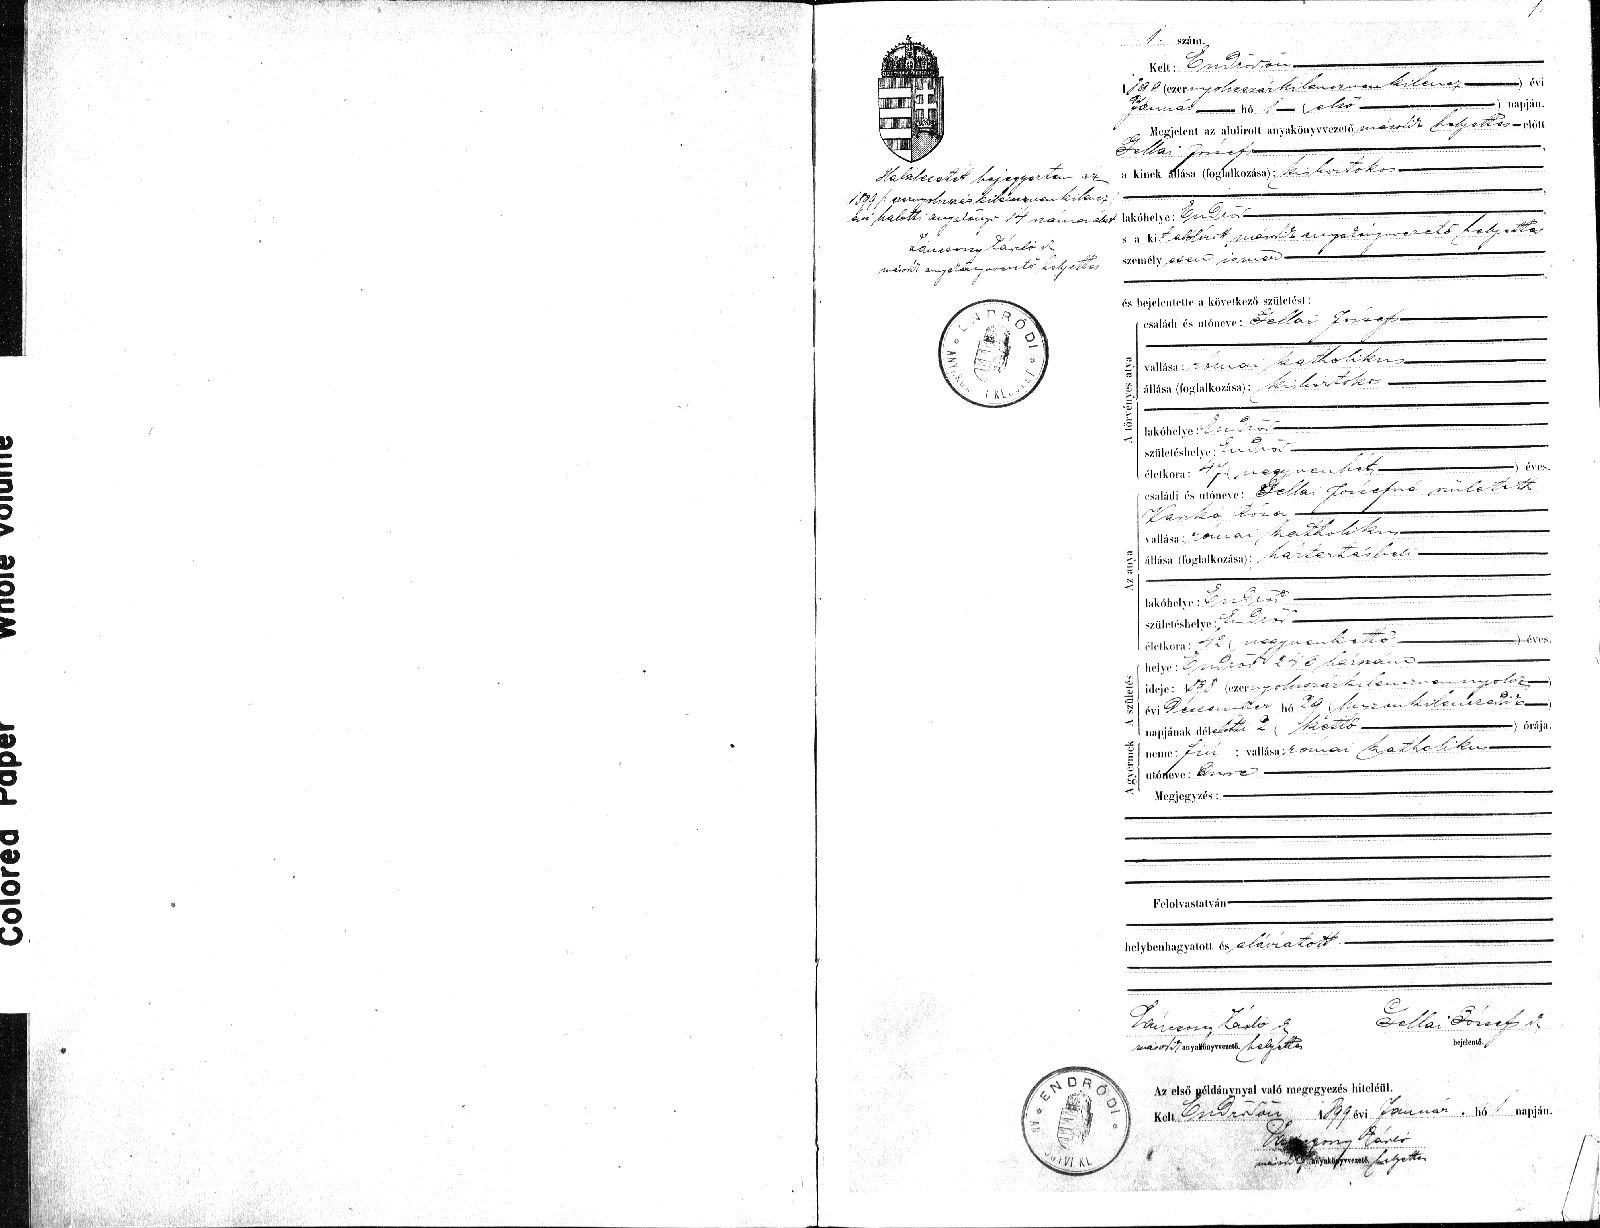 Colored Paper Whole Volume
1.
1. szám.
Kelt: Endrődön
1899 (ezernyolcszázkilencvenkilencz) évi
Január hó 1 (első) napján.
Megjelent az alulírott anyakönyvvezető másodh helyettes előtt
Gellai József
a kinek állása (foglalkozása): kisbirtokos
lakóhelye: Endrőd
s a kit alólirt másodh anyakönyvvezető helyettes
személyesen ismer
és bejelentette a következő születést:
A törvényes atya
családi és utóneve: Gellai József
vallása: római katholikus
állása (foglalkozása): kisbirtokos
lakóhelye: Endrőd
születéshelye: Endrőd
életkora: 47 (negyvenhét) éves.
Az anya
családi és utóneve: Gellai Józsefné született
Róza
vallása: római katholikus
állása (foglalkozása): háztartásbeli
lakóhelye: Endrőd
születéshelye: Endrőd
életkora: 42 (negyvenkettő) éves.
A születés
helye: Endrőd házszám
ideje: 1898 (ezernyolcszázkilencvennyolcz)
évi Deczember hó 29 (huszonkilenczedik)
napjának délelőtti 2 (kettő) órája.
A gyermek
neme: fiú ; vallása: római katholikus
utóneve: Imre
Megjegyzés:
Felolvastatván
helybenhagyatott és aláiratott
másodh anyakönyvvezető. helyettes
Gellai József
bejelentő.
Az első példánynyal való megegyezés hiteléül.
Kelt Endrődön 1899 évi Január hó 1 napján.
másodh anyakönyvvezető. helyettes
Halálesetét bejegyeztem az
1899 (ezernyolcszázkilencvenkilencz)
évi halotti anyakönyv 14 száma alatt
másodh anyakönyvvezető helyettes
ENDRŐDI
ENDRŐDI